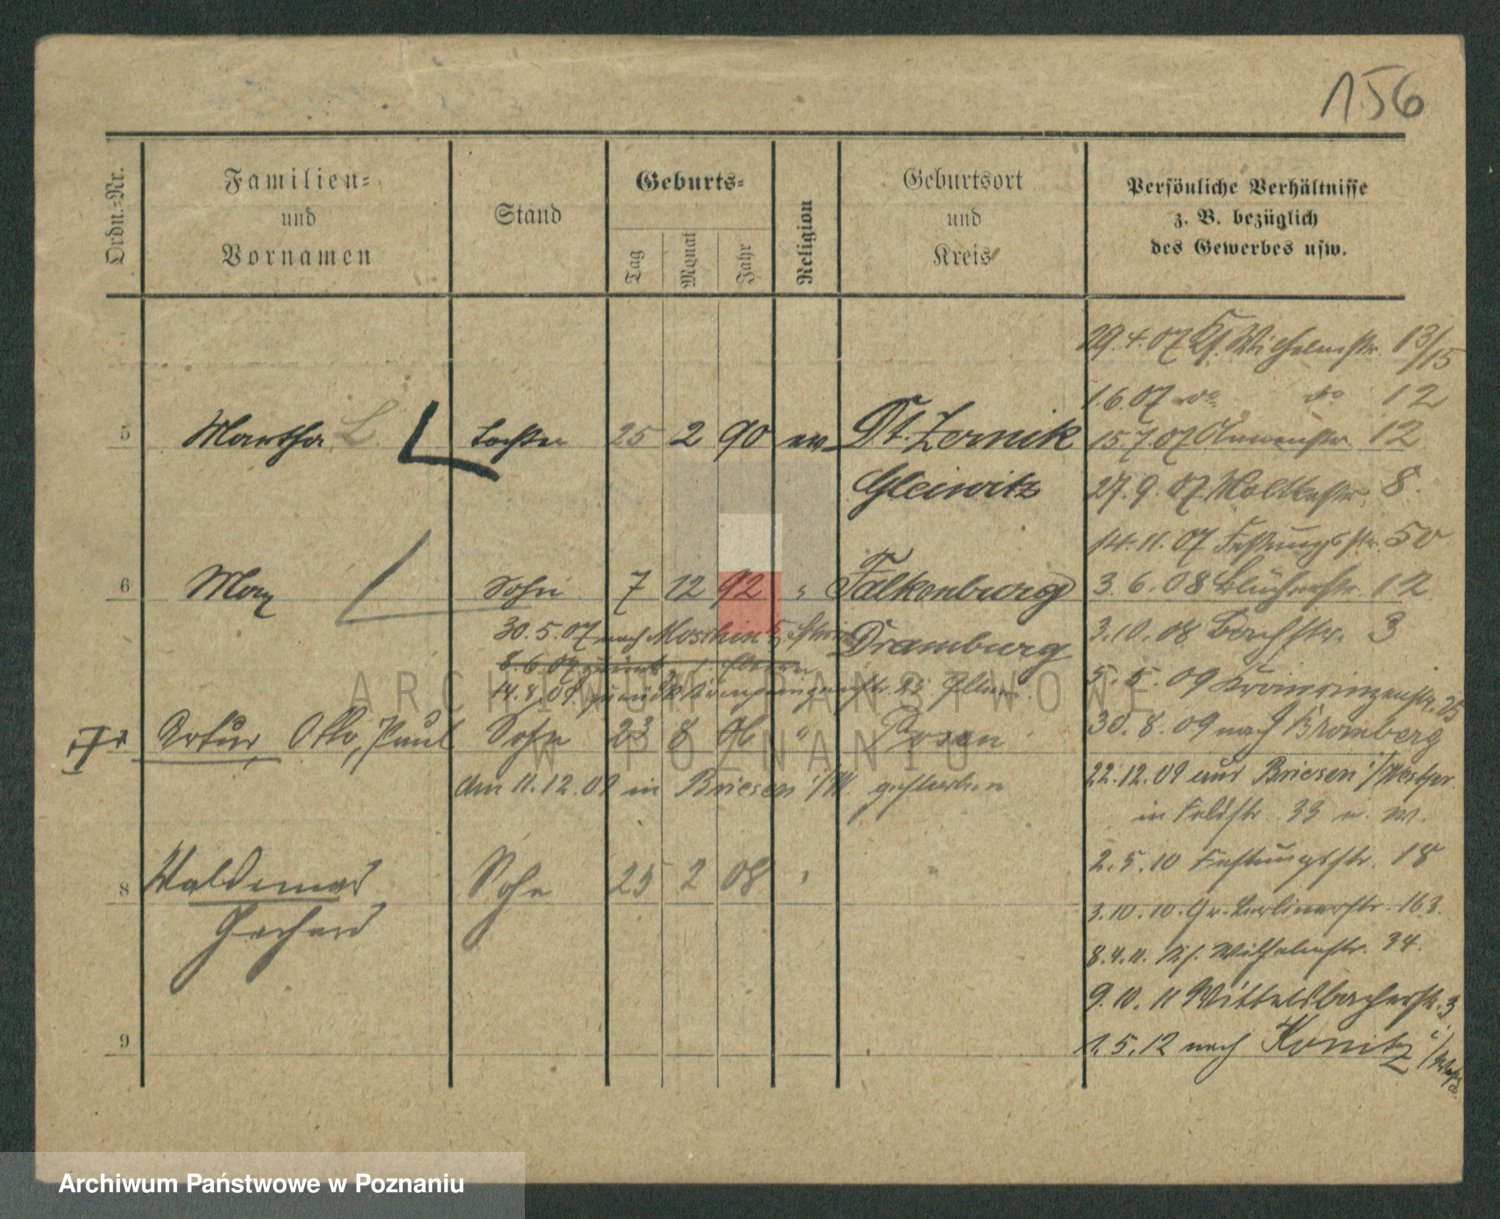 156
Ordn.-Nr.
Familien-
und
Vornamen
Stand
Geburts-
Tag
Monat
Jahr
Religion
Geburtsort
und
Kreis
Persönliche Verhältnisse
z. B. bezüglich
des Gewerbes usw.
29.4.07 Ks. Wilhelmstr. 13/15
1.6.07 do do 12
5 Martha L. Tochter 25 2 90 ev Dt. Zernik
15.7.07 12
Gleiwitz
27.9.07 Moltkestr. 8
14.11.07 Festungsstr. 50
6 Max Sohn 7 12 92 " Falkenburg
3.6.08 Blücherstr. 12
30.5.07 nach Moschin
Dramburg
3.10.08 Bachstr. 3
8.6.07 zurück
14.8.08 zurück Kronprinzenstr.
5.5.09 Kronprinzenstr. 25
7 Artur, Otto, Paul Sohn 23 8 96 " Posen
30.8.09 nach Bromberg
am 11.12.09 in Briesen i/W gestorben
22.12.09 aus Briesen i/Westpr.
in Feldstr. 33 u. w.
8 Waldemar Sohn 25 2 08 " "
Gerhard
2.5.10 Festungsstr. 18
3.10.10. Gr. Berlinerstr. 163.
8.4.11. Ks. Wilhelmstr. 34.
9.10.11 Wittelsbacherstr. 3
9
1.5.12 nach Konitz i/Westpr.
ARCHIWUM PAŃSTWOWE
W POZNANIU
Archiwum Państwowe w Poznaniu